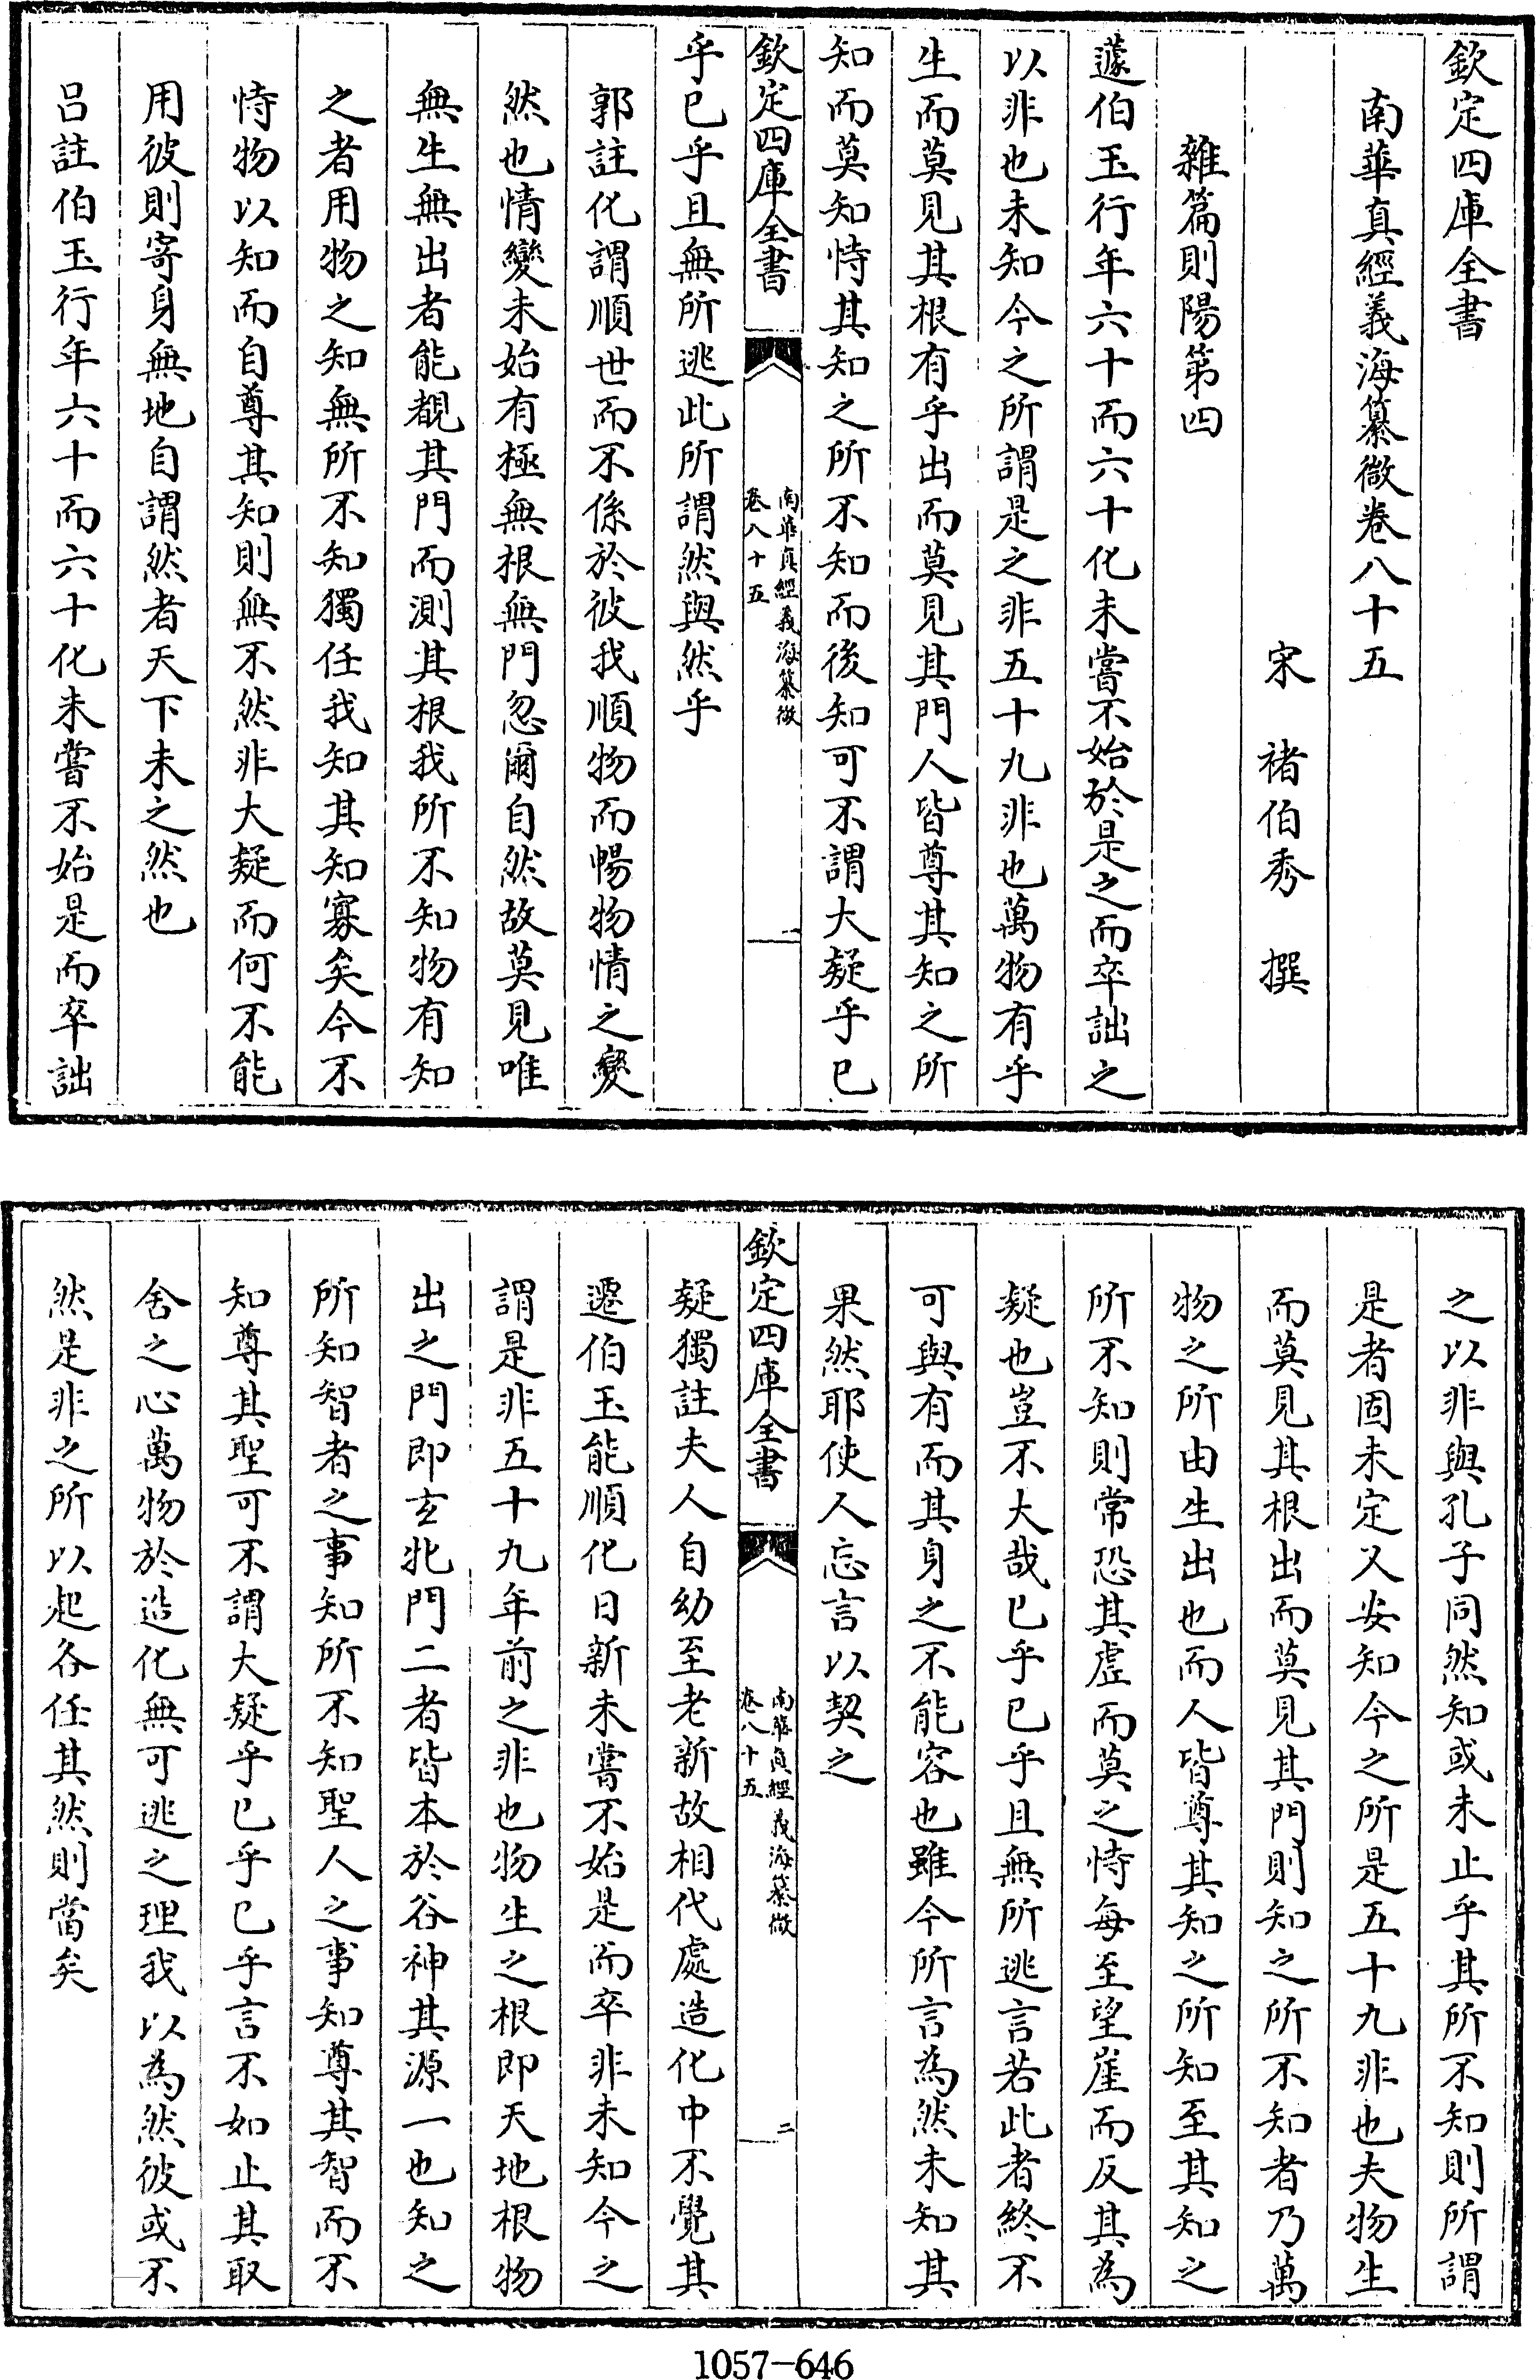 欽定四庫全書
南華真經義海纂微卷八十五
宋 褚伯秀 撰
雜篇則陽第四
蘧伯玉行年六十而六十化未嘗不始於是之而卒詘之
以非也未知今之所謂是之非五十九非也萬物有乎
生而莫見其根有乎出而莫見其門人皆尊其知之所
知而莫知恃其知之所不知而後知可不謂大疑乎已
欽定四庫全書
南華真經義海纂微
卷八十五
一
乎已乎且無所逃此所謂然與然乎
郭註化謂順世而不係於彼我順物而暢物情之變
然也情變未始有極無根無門忽爾自然故莫見唯
無生無出者能覩其門而測其根我所不知物有知
之者用物之知無所不知獨任我知其知寡矣今不
恃物以知而自尊其知則無不然非大疑而何不能
用彼則寄身無地自謂然者天下未之然也
呂註伯玉行年六十而六十化未嘗不始是而卒詘
之以非與孔子同然知或未止乎其所不知則所謂
是者固未定又安知今之所是五十九非也夫物生
而莫見其根出而莫見其門則知之所不知者乃萬
物之所由生出也而人皆尊其知之所知至其知之
所不知則常恐其虛而莫之恃每至望崖而反其為
疑也豈不大哉已乎已乎且無所逃言若此者終不
可與有而其身之不能容也雖今所言為然未知其
果然耶使人忘言以契之
欽定四庫全書
南華真經義海纂微
卷八十五
二
疑獨註夫人自幼至老新故相代處造化中不覺其
遷伯玉能順化日新未嘗不始是而卒非未知今之
謂是非五十九年前之非也物生之根即天地根物
出之門即玄牝門二者皆本於谷神其源一也知之
所知智者之事知所不知聖人之事知尊其智而不
知尊其聖可不謂大疑乎已乎已乎言不如止其取
舍之心萬物於造化無可逃之理我以為然彼或不
然是非之所以起各任其然則當矣
1057-646